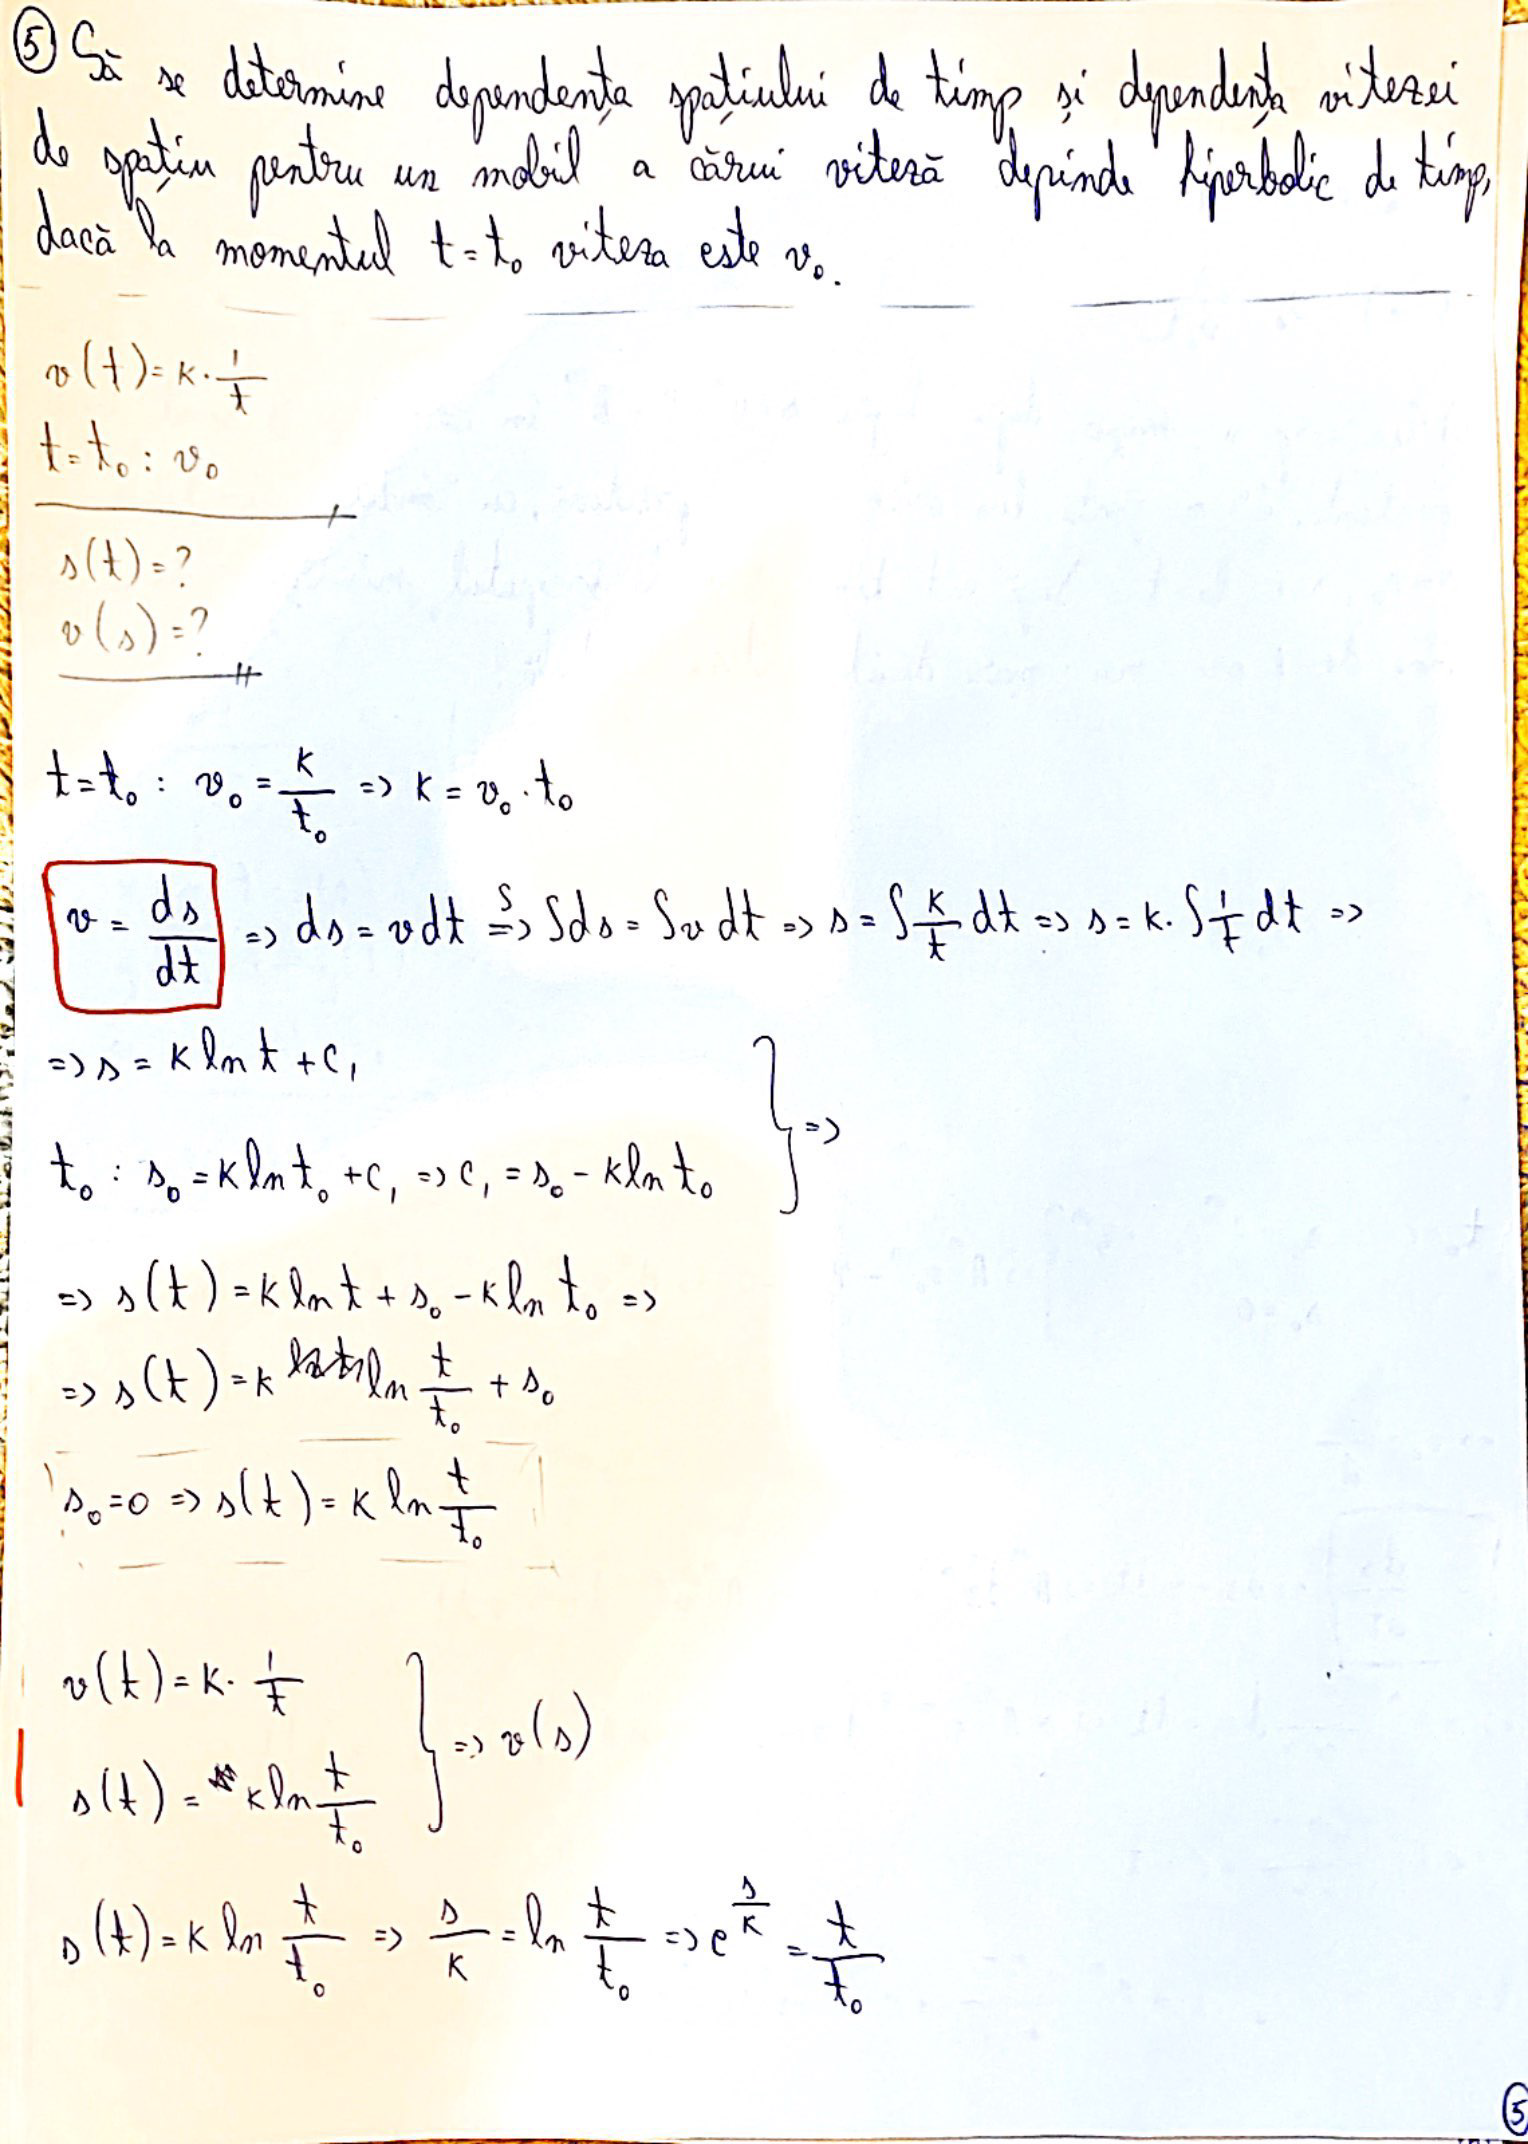 ⑤ Să se determine dependența spațiului de timp și dependența vitezei
de spațiu pentru un mobil a cărui viteză depinde hiperbolic de timp,
dacă la momentul t=t₀ viteza este v₀.
v(t)=k·1/t
t=t₀: v₀
s(t)=?
v(s)=?
t=t₀: v₀=k/t₀ => k=v₀·t₀
v=ds/dt => ds=vdt =>∫ ∫ds=∫vdt => s=∫k/t dt => s=k·∫1/t dt =>
=> s=k ln t+c₁
} =>
t₀: s₀=k ln t₀+c₁ => c₁=s₀-k ln t₀
=> s(t)=k ln t+s₀-k ln t₀ =>
=> s(t)=k ln t/t₀ + s₀
s₀=0 => s(t)=k ln t/t₀
v(t)=k·1/t
} => v(s)
s(t)=k ln t/t₀
s(t)=k ln t/t₀ => s/k=ln t/t₀ => e^(s/k)=t/t₀
⑤